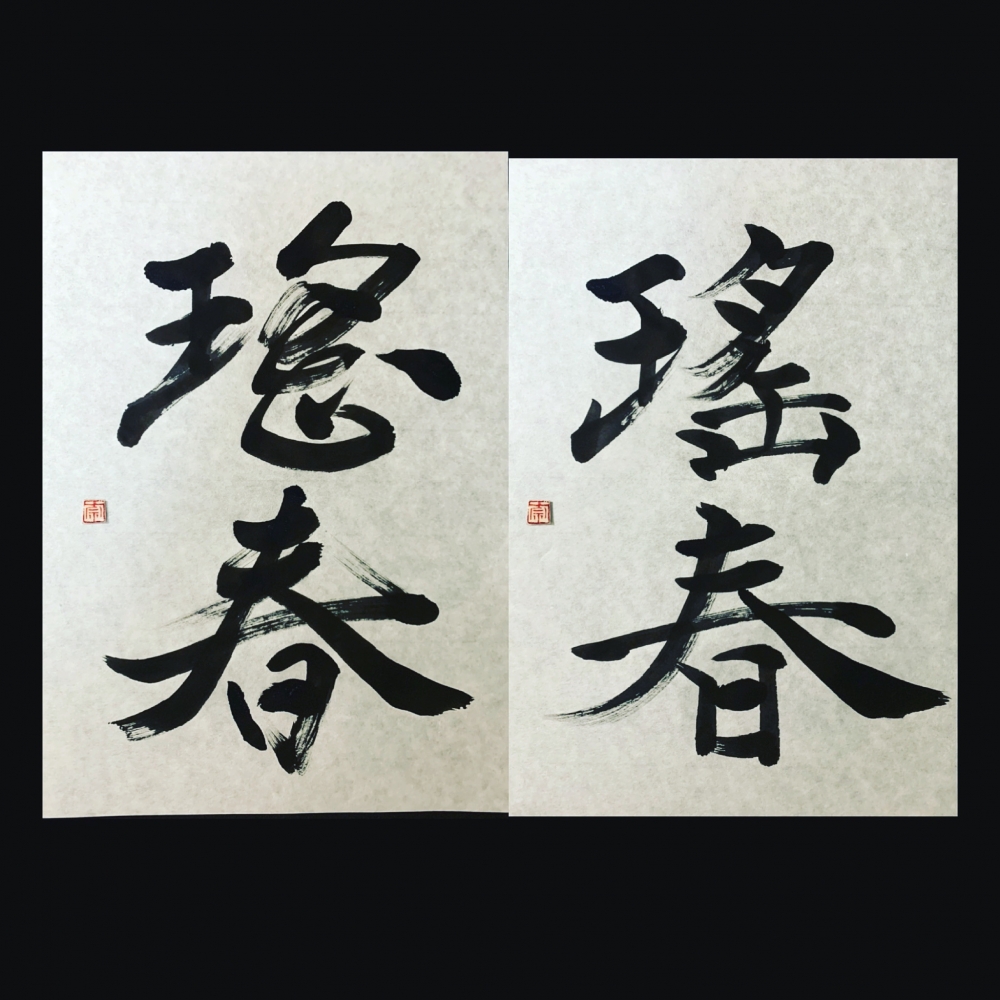 瑤春
瑤春